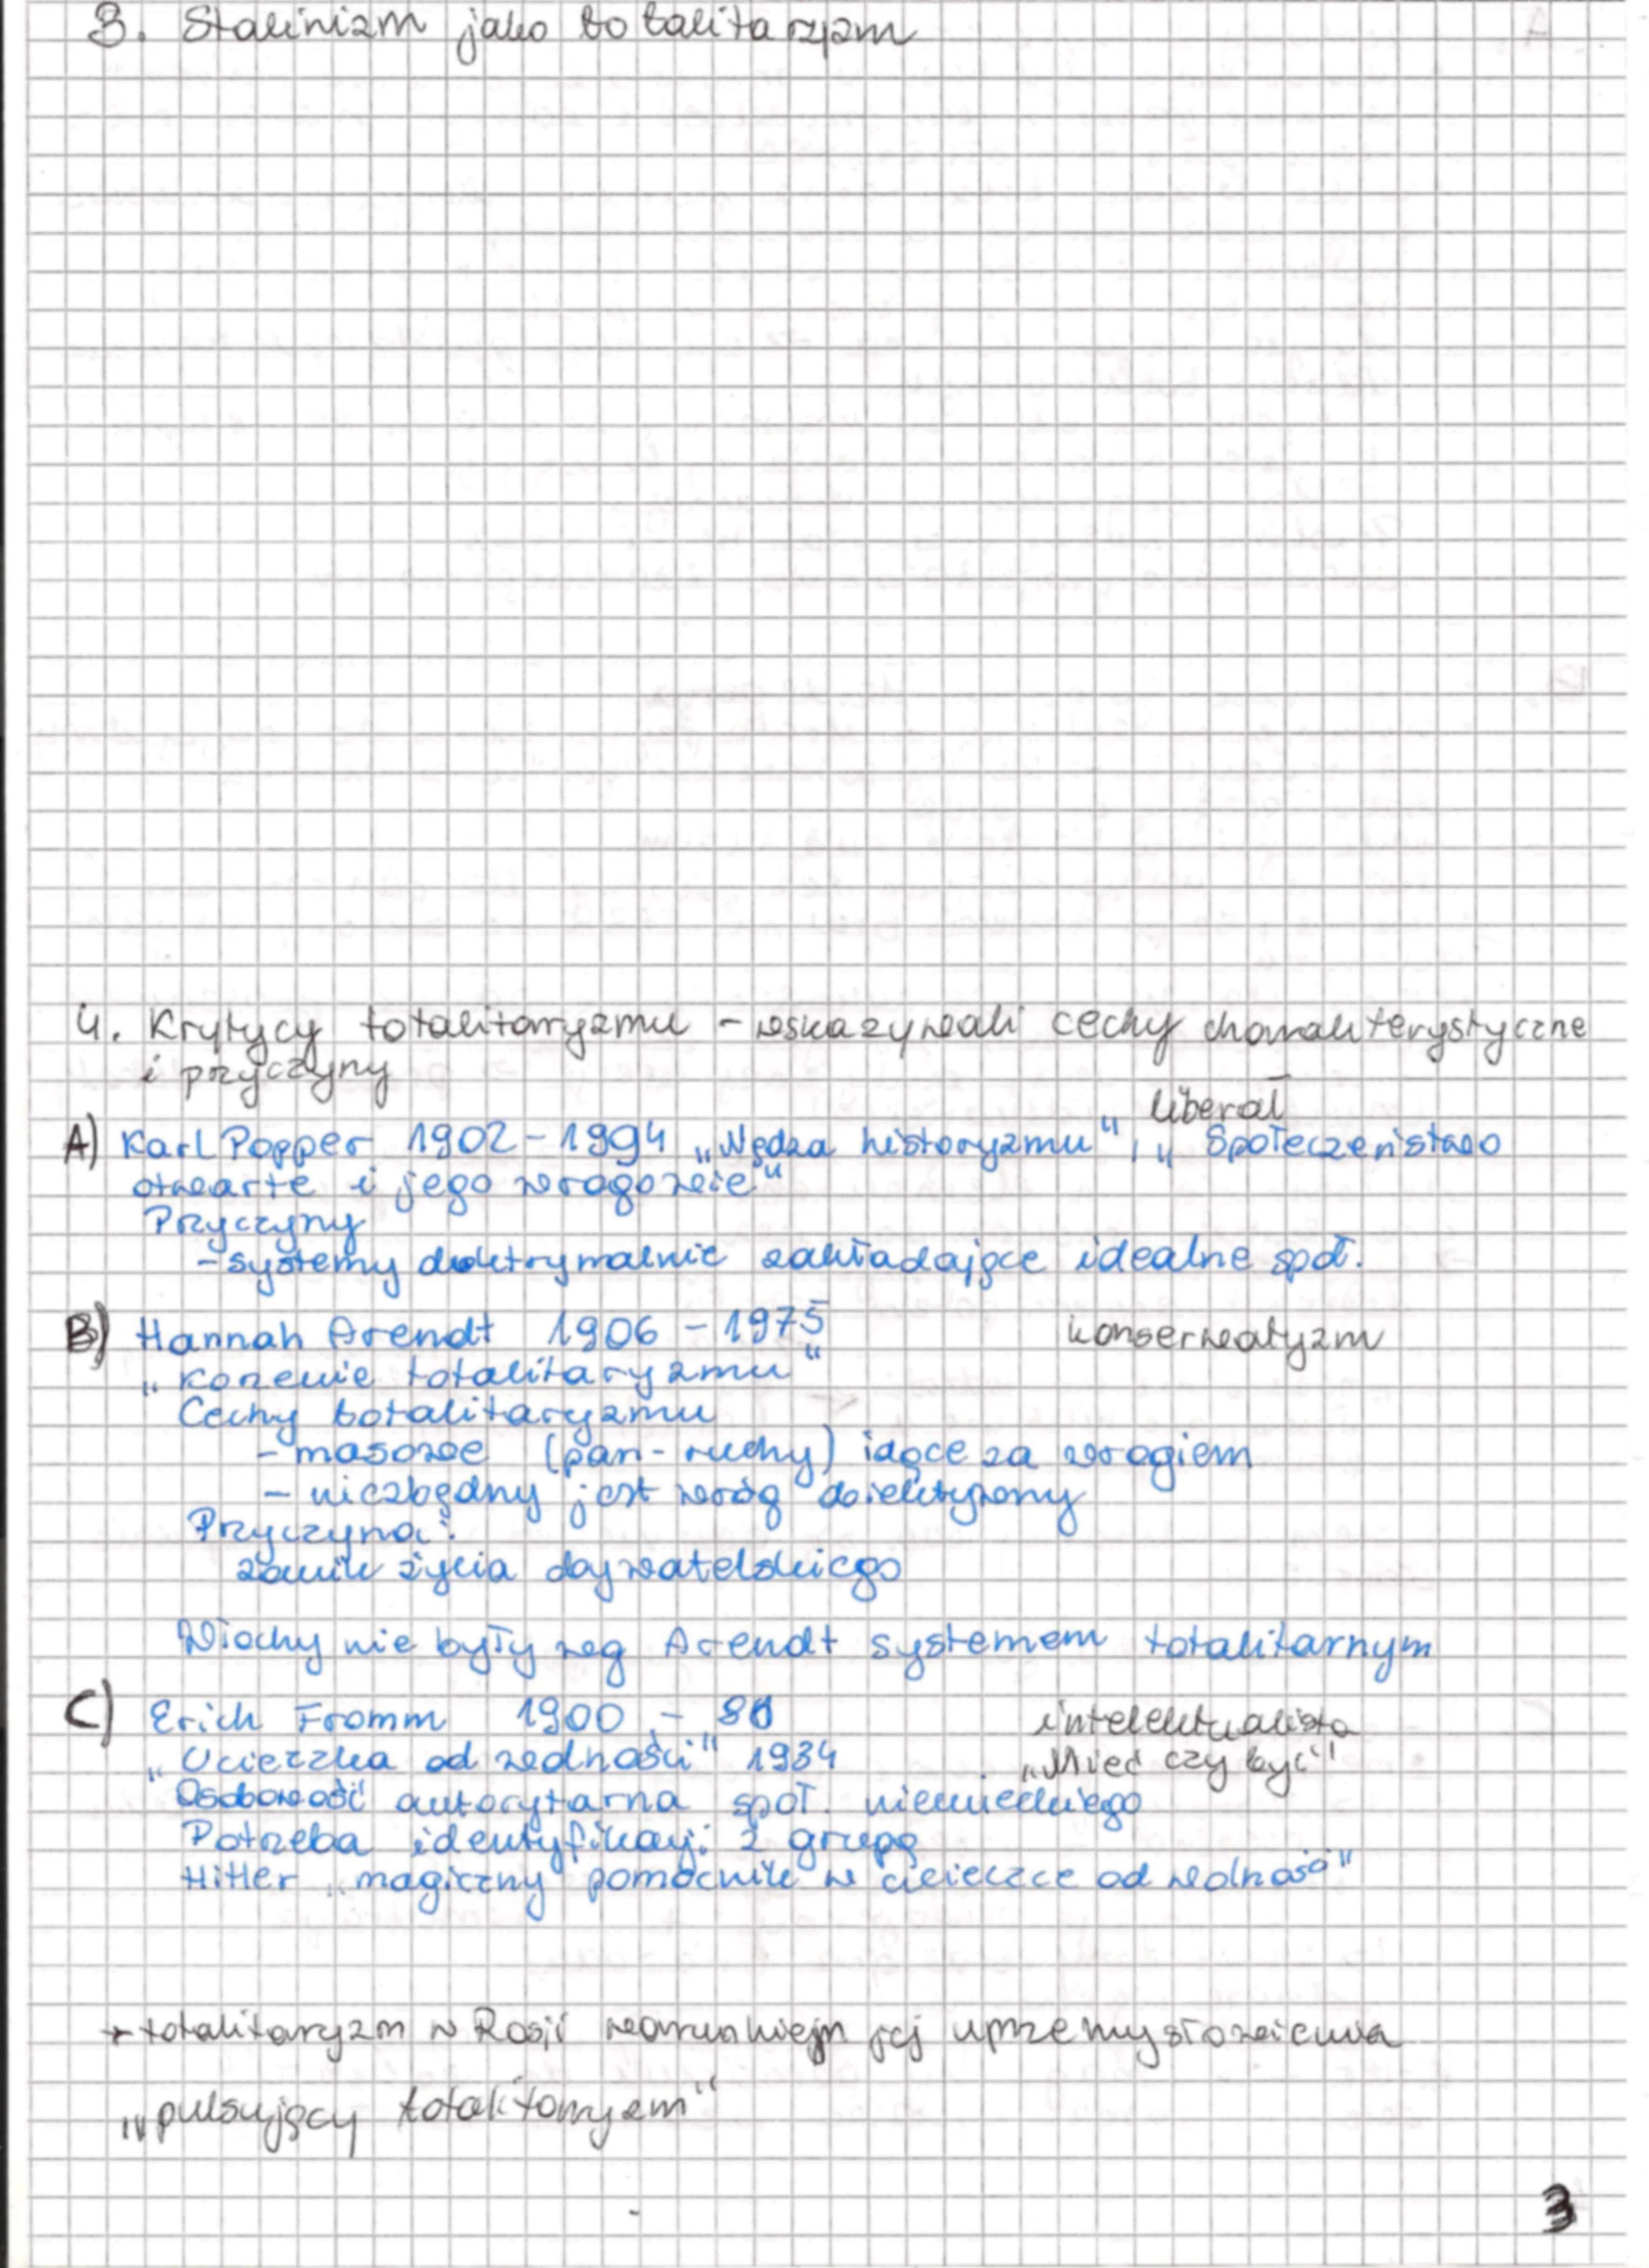 3. Stalinizm jako totalitaryzm
4. Krytycy totalitaryzmu - wskazywali cechy charakterystyczne
i przyczyny
liberał
A) Karl Popper 1902 - 1994 „Nędza historyzmu", „Społeczeństwo
otwarte i jego wrogowie"
Przyczyny
- systemy doktrynalnie zakładające idealne społ.
B) Hannah Arendt 1906 - 1975 konserwatyzm
„Korzenie totalitaryzmu"
Cechy totalitaryzmu
- masowe (pan-ruchy) idące za wrogiem
- niezbędny jest wróg obiektywny
Przyczyna:
zanik życia obywatelskiego
Włochy nie były wg Arendt systemem totalitarnym
C) Erich Fromm 1900 - 80 intelektualista
„Ucieczka od wolności" 1934 „Mieć czy być"
Osobowość autorytarna społ. niemieckiego
Potrzeba identyfikacji z grupą
Hitler „magiczny pomocnik w ucieczce od wolności"
→ totalitaryzm w Rosji warunkiem jej uprzemysłowienia
„pulsujący totalitaryzm"
3